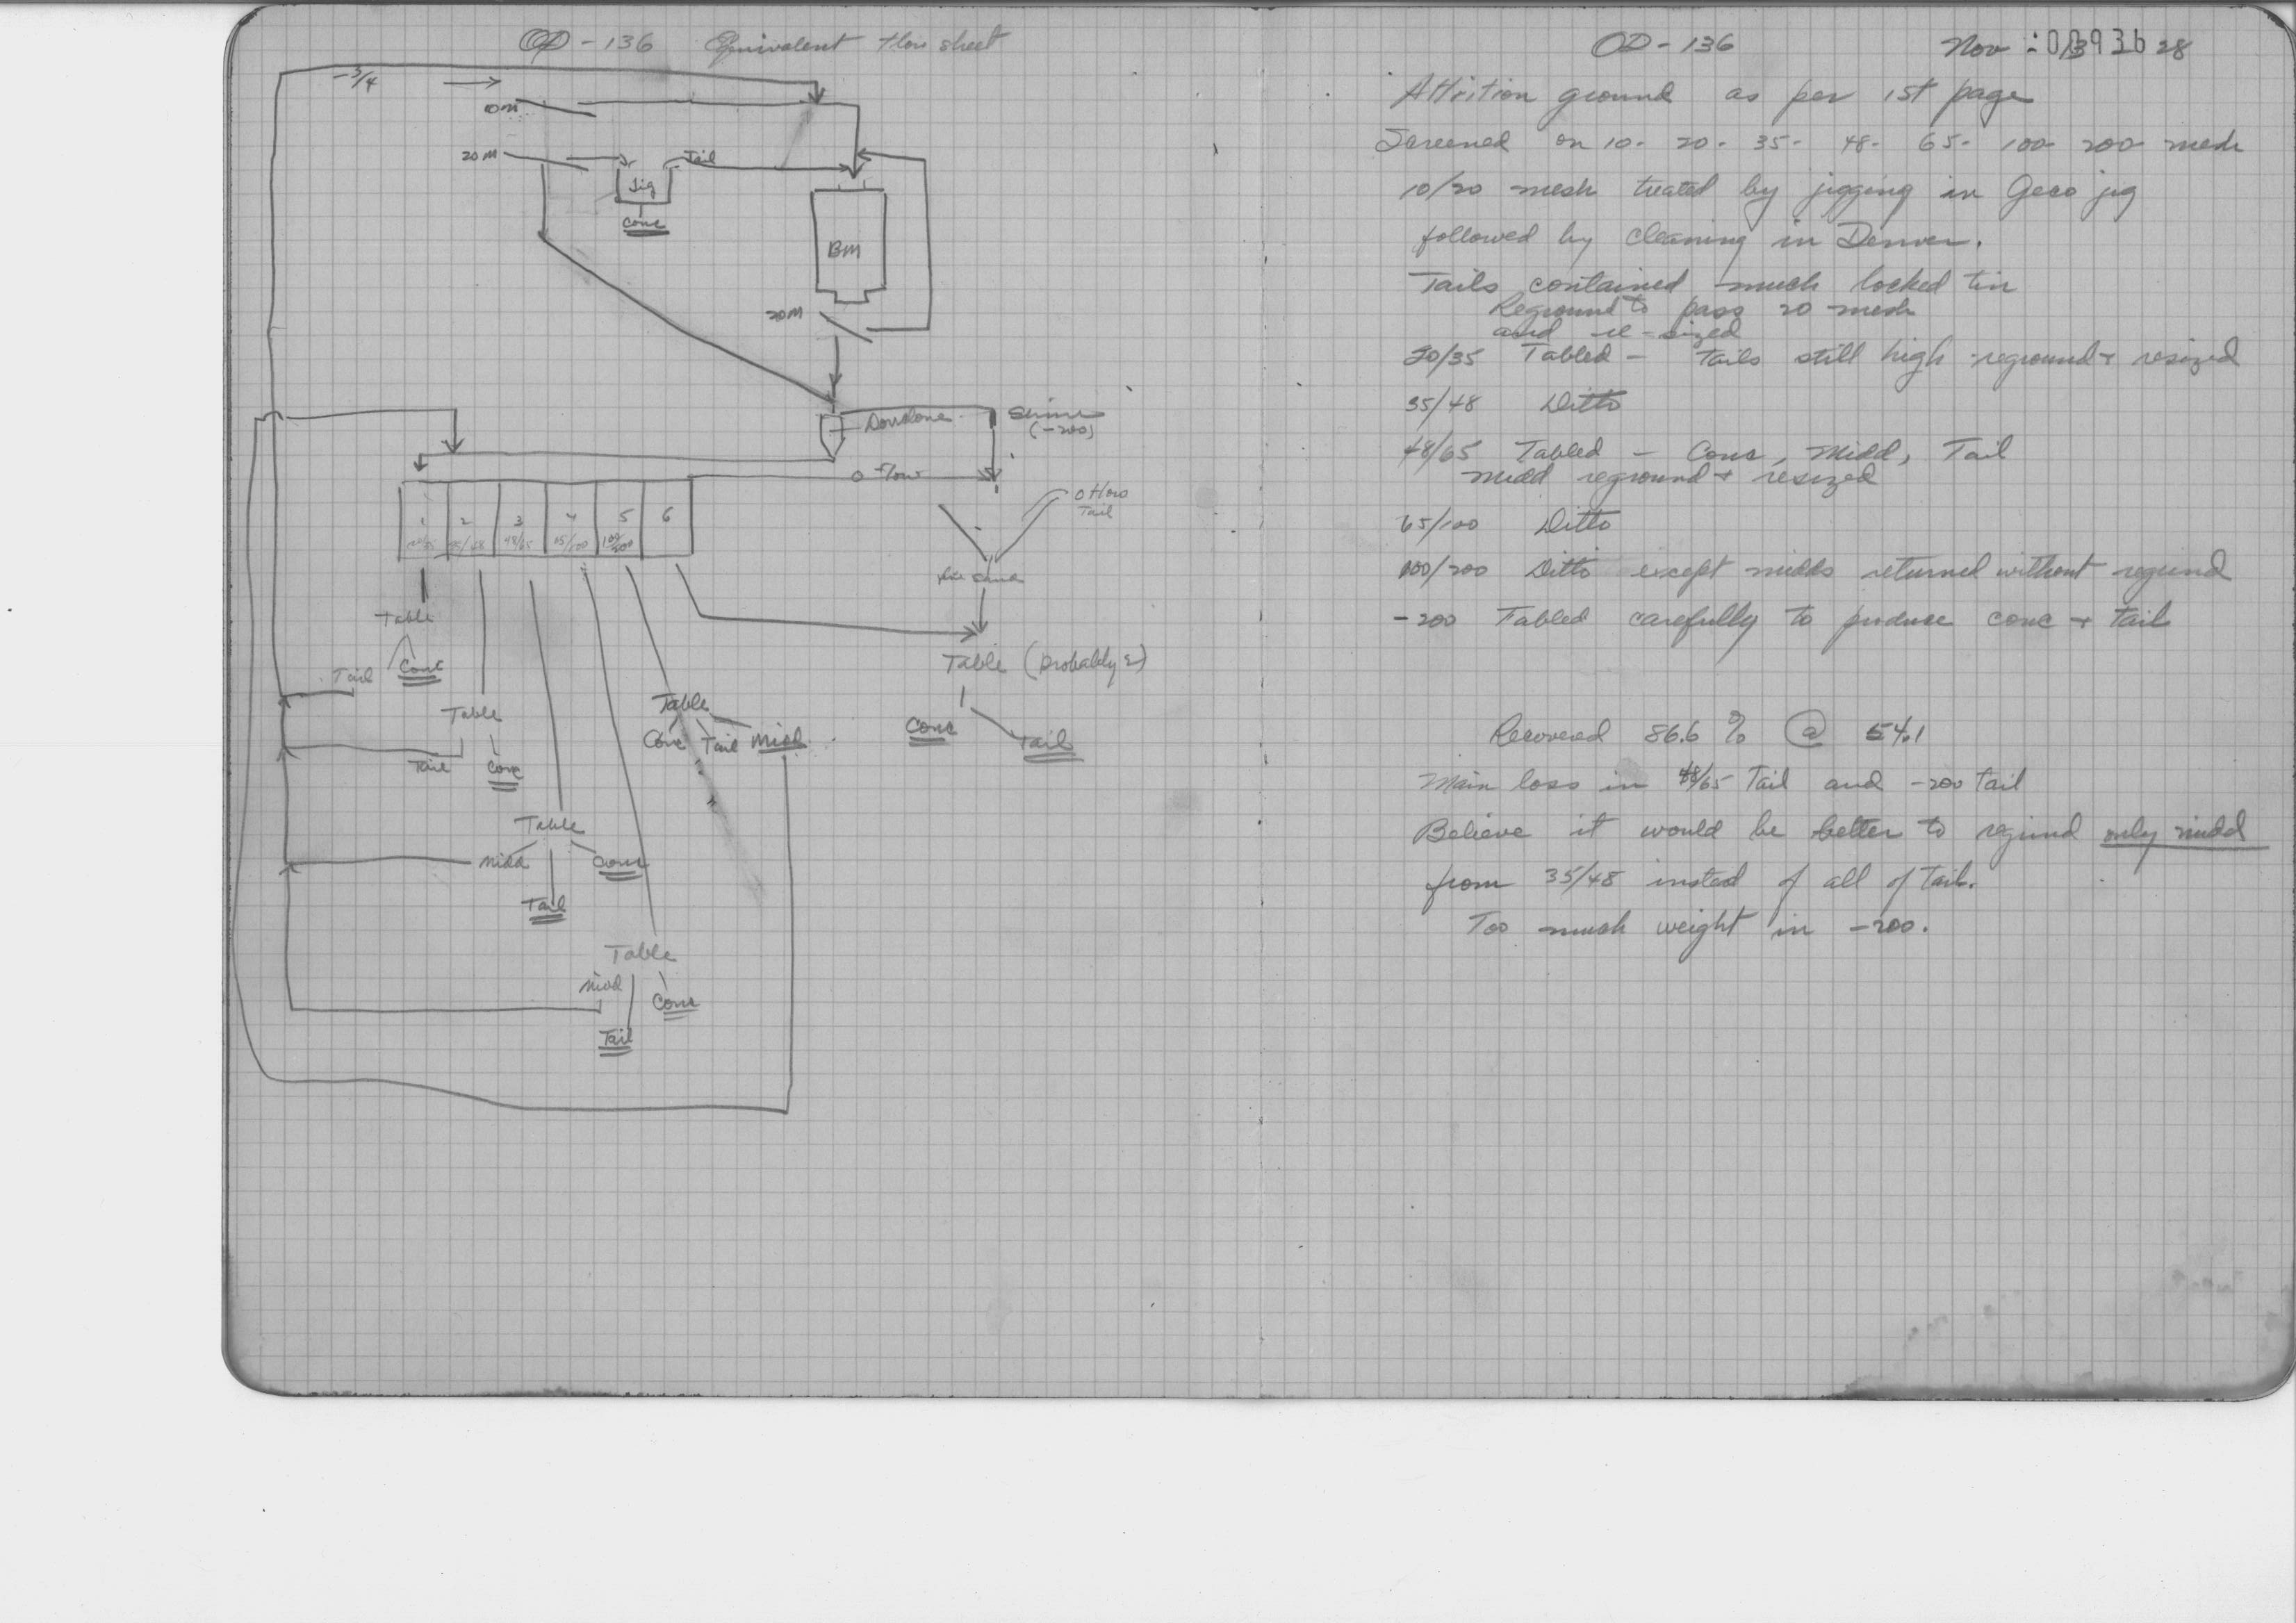 OD - 136 Equivalent flow sheet
-3/4
10M
20M
Jig
Tail
Conc
BM
20M
Dorrclone
Slime
(-200)
O Flow
O Flow
Tail
1 2 3 4 5 6
20/35 35/48 48/65 65/100 100/200
Table
Conc
Tail
Table
Tail Conc
Table
Midd Conc
Tail
Table
Midd Conc
Tail
Table
Conc Tail Midd
Table (Probably 2)
Conc
Tail
OD - 136 Nov 28
Attrition ground as per 1st page
Screened on 10 - 20 - 35 - 48 - 65 - 100 - 200 mesh
10/20 mesh treated by jigging in Geco jig
followed by cleaning in Denver.
Tails contained much locked tin
Reground to pass 20 mesh
and re-sized
20/35 Tabled - Tails still high - reground + resized
35/48 Ditto
48/65 Tabled - Conc, Midd, Tail
Midd reground + resized
65/100 Ditto
100/200 Ditto except midds returned without regrind
-200 Tabled carefully to produce conc + tail
Recovered 86.6 % @ 54.1
Main loss in 48/65 Tail and -200 tail
Believe it would be better to regrind only midd
from 35/48 insted of all of tail.
Too much weight in -200.